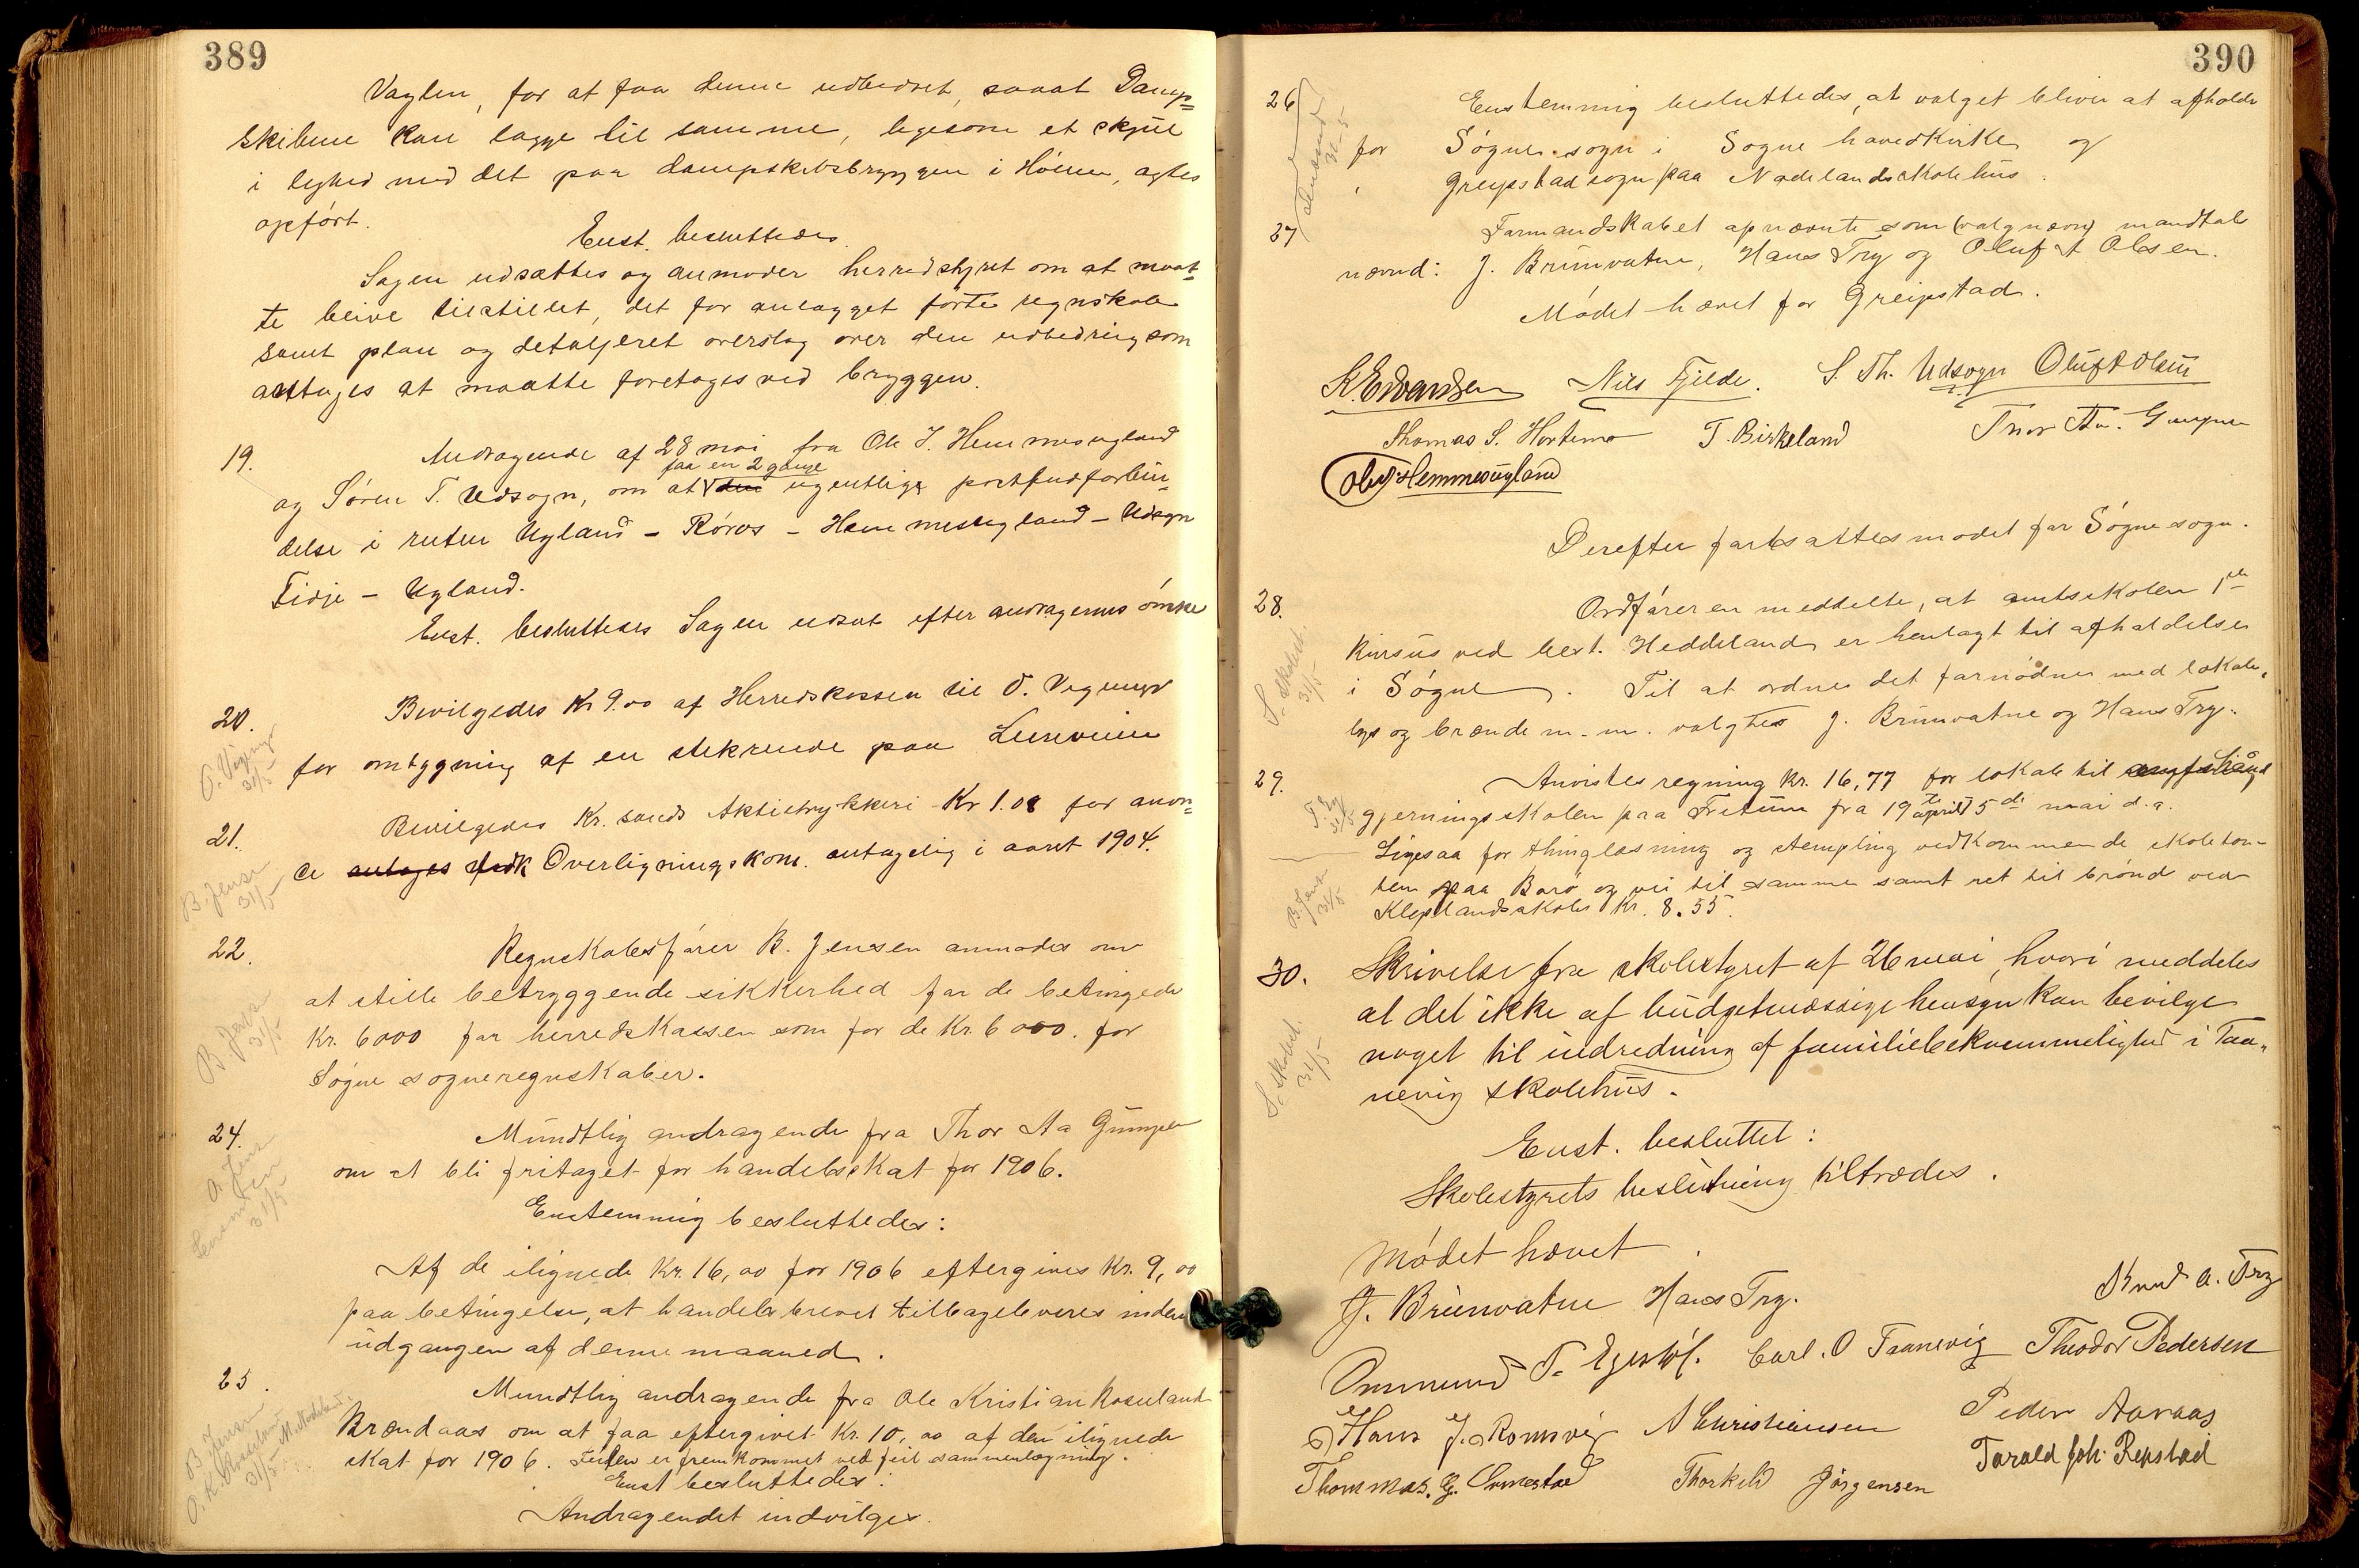 389
Vaglen, for at faa denne udbedret, saaat Damp=
skibene kan lægge til samme, ligesom et skjul
i lighed med det paa dampskibsbryggen i Høllen, agtes
opført.
Enst. besluttedes
Sagen udsættes og anmoder herredstyret om at maat=
te blive tilstillet, det for anlægget førte regnskab
samt plan og detaljeret overslag over den udbedring som
antages at maatte foretages ved bryggen.
19. Andragende af 28 mai fra Ole J. Hemmesugland
faa en 2 gange
og Søren T. Udsogn, om at den ugentlige postbudforbin=
delse i ruten Ugland - Røros - Hemmesugland - Udsogn
Fidje - Ugland.
Enst. besluttedes Sagen udsat efter andragernes ønske
20. Bevilgedes Kr 9.00 af Herredskassen til O. Vegunge
O. Vigungs 31/5
for ombygning af en stikrende paa Lunveien
21. Bevilgedes Kr. sands Aktietrykkeri Kr 1.08 for avon=
B. Jensen 31/5
ce antages Overligningskom. antagelig i aaret 1904.
22. Regnskabsfører B. Jensen anmodes om
at stille betryggende sikkerhed for de betingede
B. Jens 31/5
Kr. 6000 for herredskassen som for de Kr. 6000. for
Søgne sogneregnskaber.
24. Mundtlig andragende fra Thor Aa Gumpen
om at bli fritaget for handelsskat for 1906.
Lensmanden 31/5
Enstemmig besluttedes:
Af de ilignede Kr. 16,00 for 1906 eftergives Kr. 9,00
paa betingelse, at handelsbrevet tilbageleveres inden
udgangen af denne maaned.
25. Mundtlig andragende fra Ole Kristian Rosseland
Brændaas om at faa eftergivet Kr. 10,00 af den ilignede
B. Jensen
O. K. Rosseland 31/5
skat for 1906. Feilen er fremkommet ved feil sammenlægning.
Enst besluttedes:
Andragendet indvilges.
390
26 Enstemmig besluttedes, at valget bliver at afholde
for Søgne sogn i Søgne hovedkirke og
Lensmand 31-5
" Greipstad sogn paa Nodelandsskolehus.
27 Formandskabet opnævnte som (valgnævn) mandtals
nævnd: J. Brunvatne, Hans Try og Oluf A Olsen.
Mødet hævet for Greipstad.
K. Edvardsen Nils Fjelde. S. Th. Udsogn Oluf A Olsen
Thomas S. Hortemo T. Birkeland Thor Aa. Gumpen
Ole J. Hemmesugland
Derefter fortsattes mødet for Søgne sogn.
28. Ordføreren meddelte, at amtsskolen 1ste
Kursus ved best. Heddeland er henlagt til afholdelse
S. Skolest. 31/5
i Søgne. Til at ordne det fornødne med lokale,
lys og brænde m.m. valgtes J. Brunvatne og Hans Try.
29. Anvistes regning Kr. 16,77 for lokale til haand
gjerningsskolen paa Tretum fra 19te april 5de mai d.a.
31/5
Ligesaa for thinglæsning og stempling vedkommende skoletom-
ten paa Borø og vei til samme samt ret til brønd ved
B. Jens 31/5
Kleplandsskole Kr. 8.55.
30. Skrivelse fra skolestyret af 26 mai, hvori meddeles
at det ikke af budgetmæssige hensyn kan bevilge
noget til indredning af familiebekvemmelighed i Taa,
S. skolest. 31/5
nevig skolehus.
Enst. besluttet:
Skolestyrets beslutning tiltrædes.
Mødet hævet.
J. Brunvatne Hans Try. Knud A. Try
Ommund T. Egeskof. Carl. O Tranevig Theodor Pedersen
Hans J. Romsvig A Christiansen Peder Aaraas
Thommas. G. Omestad Thorkild Jørgensen Tarald Joh. Repstad